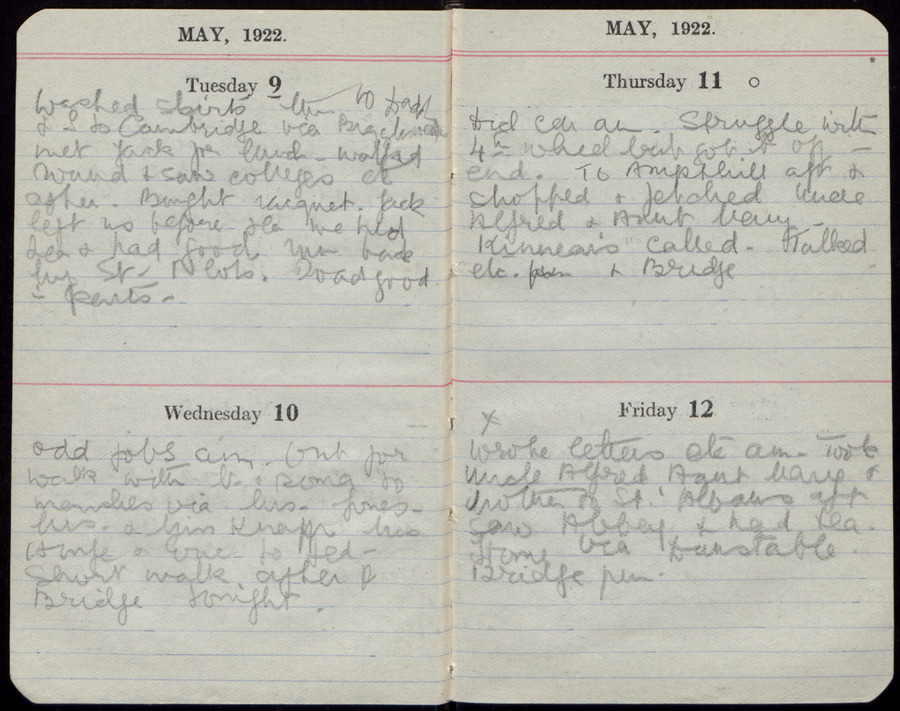 MAY, 1922.
Tuesday 9
Washed shirts to
& S to Cambridge via
met Jack for lunch - walked
round & saw colleges etc
after. Bought racquet. Jack
left us before tea we had
tea & had good run back
by St. Neots. Road good
- parts -
Wednesday 10
Odd jobs am. Out for
walk with & to
via
Mrs. & Miss Knapp
& Eric to
Short walk after &
Bridge tonight.
MAY, 1922.
Thursday 11
Did car am. Struggle with
4th wheel but got it off -
end. To Ampthill aft &
shopped & fetched Uncle
Alfred & Aunt
called. Talked
etc. & Bridge
Friday 12
x
Wrote letters etc am. Took
Uncle Alfred Aunt &
Mother to St. Albans aft
saw Abbey & had tea.
Home via Dunstable.
Bridge pm.